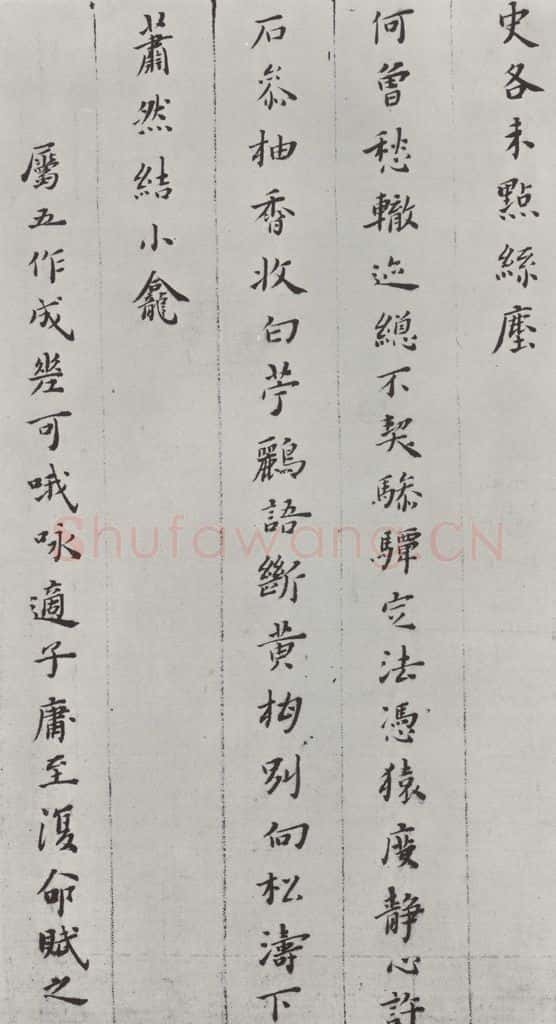 史各未點絲塵
何曾愁轍迹總不契驂驔定法憑猿度靜心許
石叅柚香收白苧鸝語斷黃梅別向松濤下
蕭然結小龕
屬五作成㘴可哦咏適子庸至復命賦之
Shufawang.CN